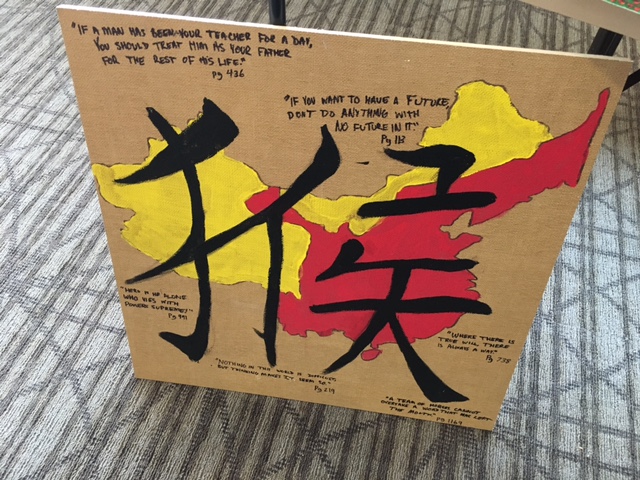 "IF A MAN HAS BEEN YOUR TEACHER FOR A DAY,
YOU SHOULD TREAT HIM AS YOUR FATHER
FOR THE REST OF HIS LIFE."
Pg 436
"IF YOU WANT TO HAVE A FUTURE,
DONT DO ANYTHING WITH
NO FUTURE IN IT."
Pg 113
猴
"HERO IS HE ALONE
WHO VIES WITH
POWERS SUPREME!"
Pg 191
"WHERE THERE IS
TRUE WILL THERE
IS ALWAYS A WAY."
Pg 738
"NOTHING IN THIS WORLD IS DIFFICULT,
BUT THINKING MAKES IT SEEM SO."
Pg 214
"A TEAM OF HORSES CANNOT
OVERTAKE A WORD THAT HAS LEFT
THE MOUTH" Pg 1169